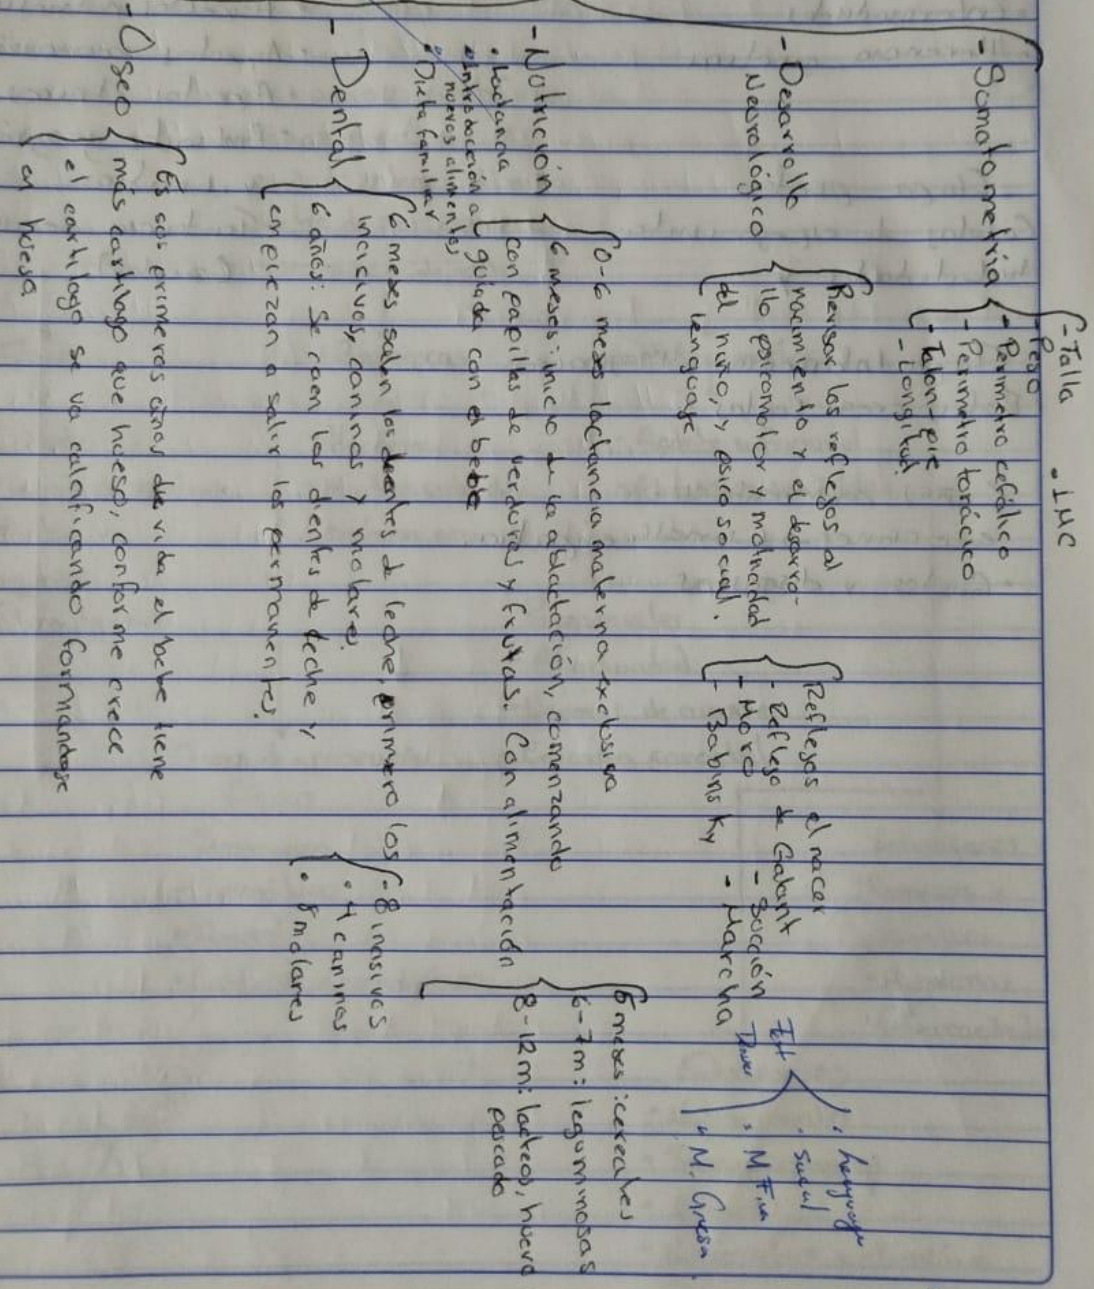 - Somatometría
- Talla
- Peso
- Perímetro cefálico
- Perímetro torácico
- Talon-pie
- Longitud
• IMC
- Desarrollo
Neurológico
Revisar los reflejos al
nacimiento y el desarro-
llo psicomotor y
del niño, y psicosocial.
lenguaje
Reflejos el nacer
- Reflejo de Galant
- Moro - Succión
- Babinsky - Marcha
Test
• Lenguaje
• Social
• M Fina
• M. Gruesa
- Nutrición
• Lactancia
• Introducción a
nuevos alimentos
• Dieta familiar
0-6 meses lactancia materna exclusiva
6 meses: inicio de la ablactación, comenzando
con papillas de verduras y frutas. Con alimentación
guiada con el bebé
6 meses: cereales
6-7m: leguminosas
8-12m: lácteos, huevo
pescado
- Dental
6 meses salen los dientes de leche, primero los
incicivos, caninos y molares.
6 años: Se caen los dientes de leche y
empiezan a salir los permanentes.
- 8 inasivos
• 4 caninos
• 8 molares
- Oseo
Es sus primeros años de vida el bebe tiene
más cartilago que hueso, conforme crece
el cartilago se va calcificando formandose
en huesa